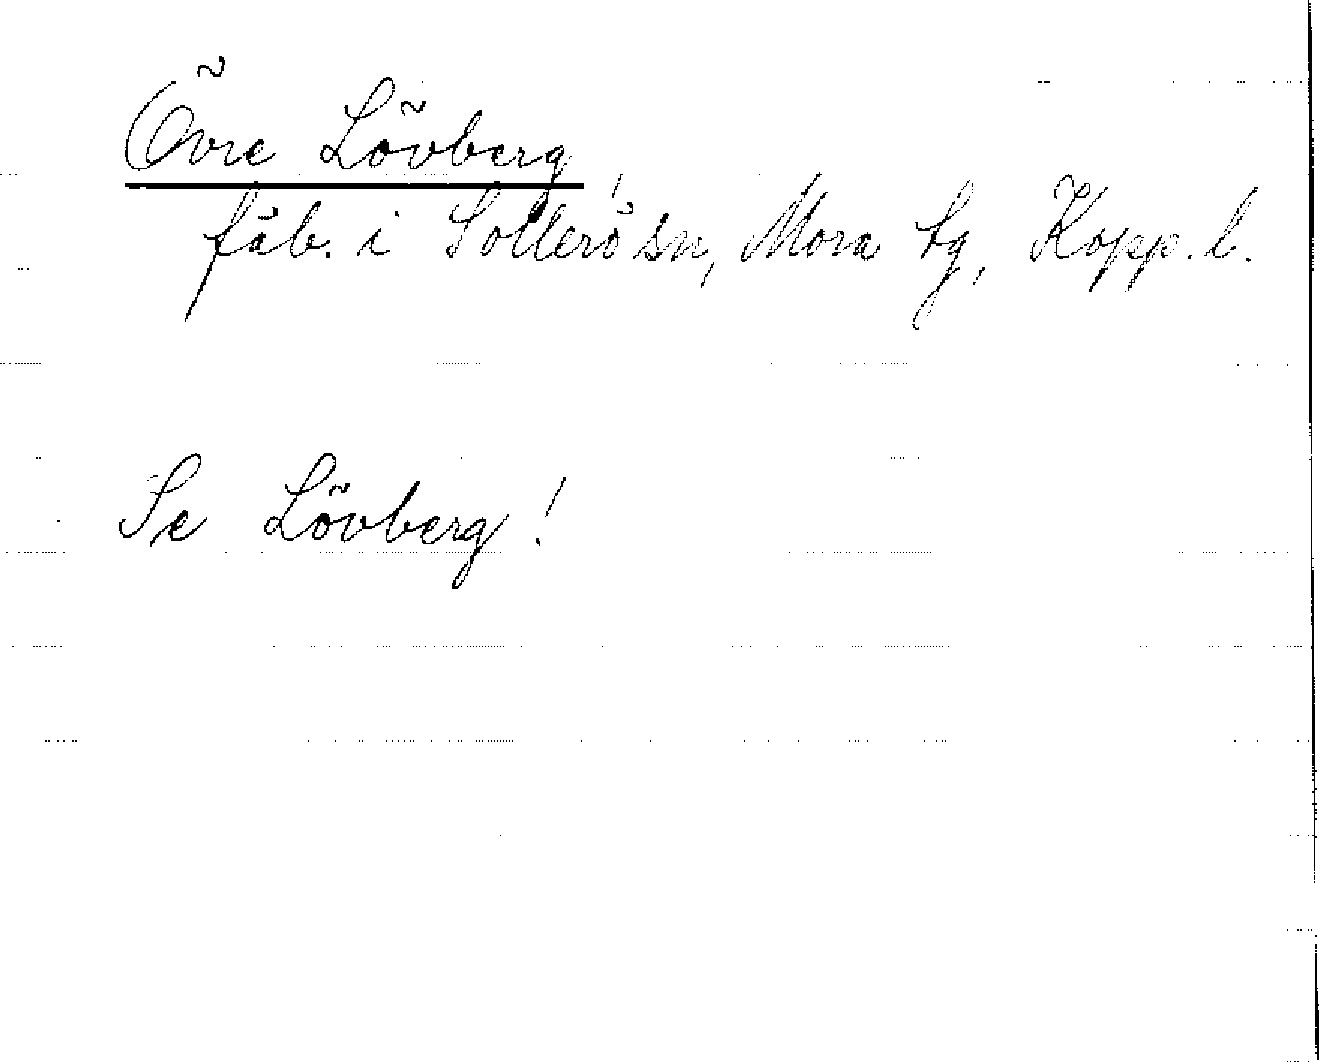 Övre Lövberg,
fäb. i Sollerö sn, Mora tg, Kopp. l.
Se Lövberg!